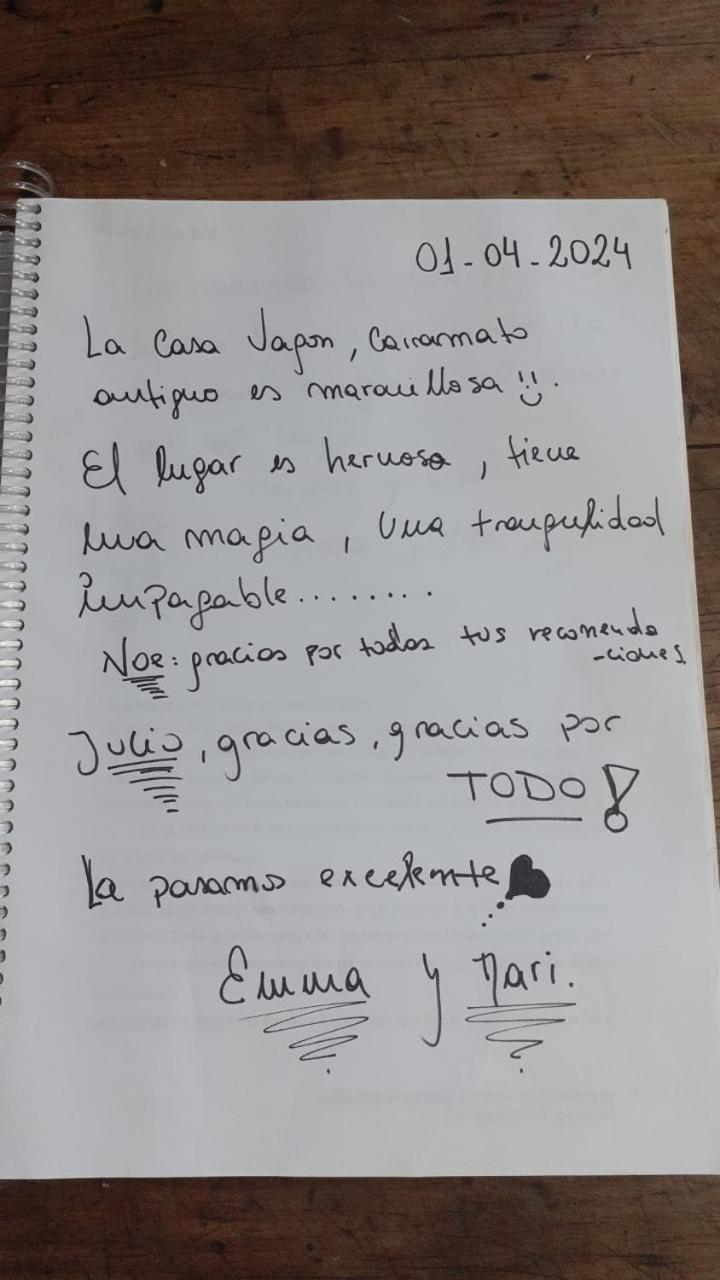 01-04-2024
La Casa Japon, Carramato
antiguo es maravillosa !!.
El lugar es hermoso, tiene
una magia, una tranquilidad
impagable........
Noe: gracias por todas tus recomenda
-ciones.
Julio, gracias, gracias por
TODO!
La pasamos excelente
Emma y Mari.